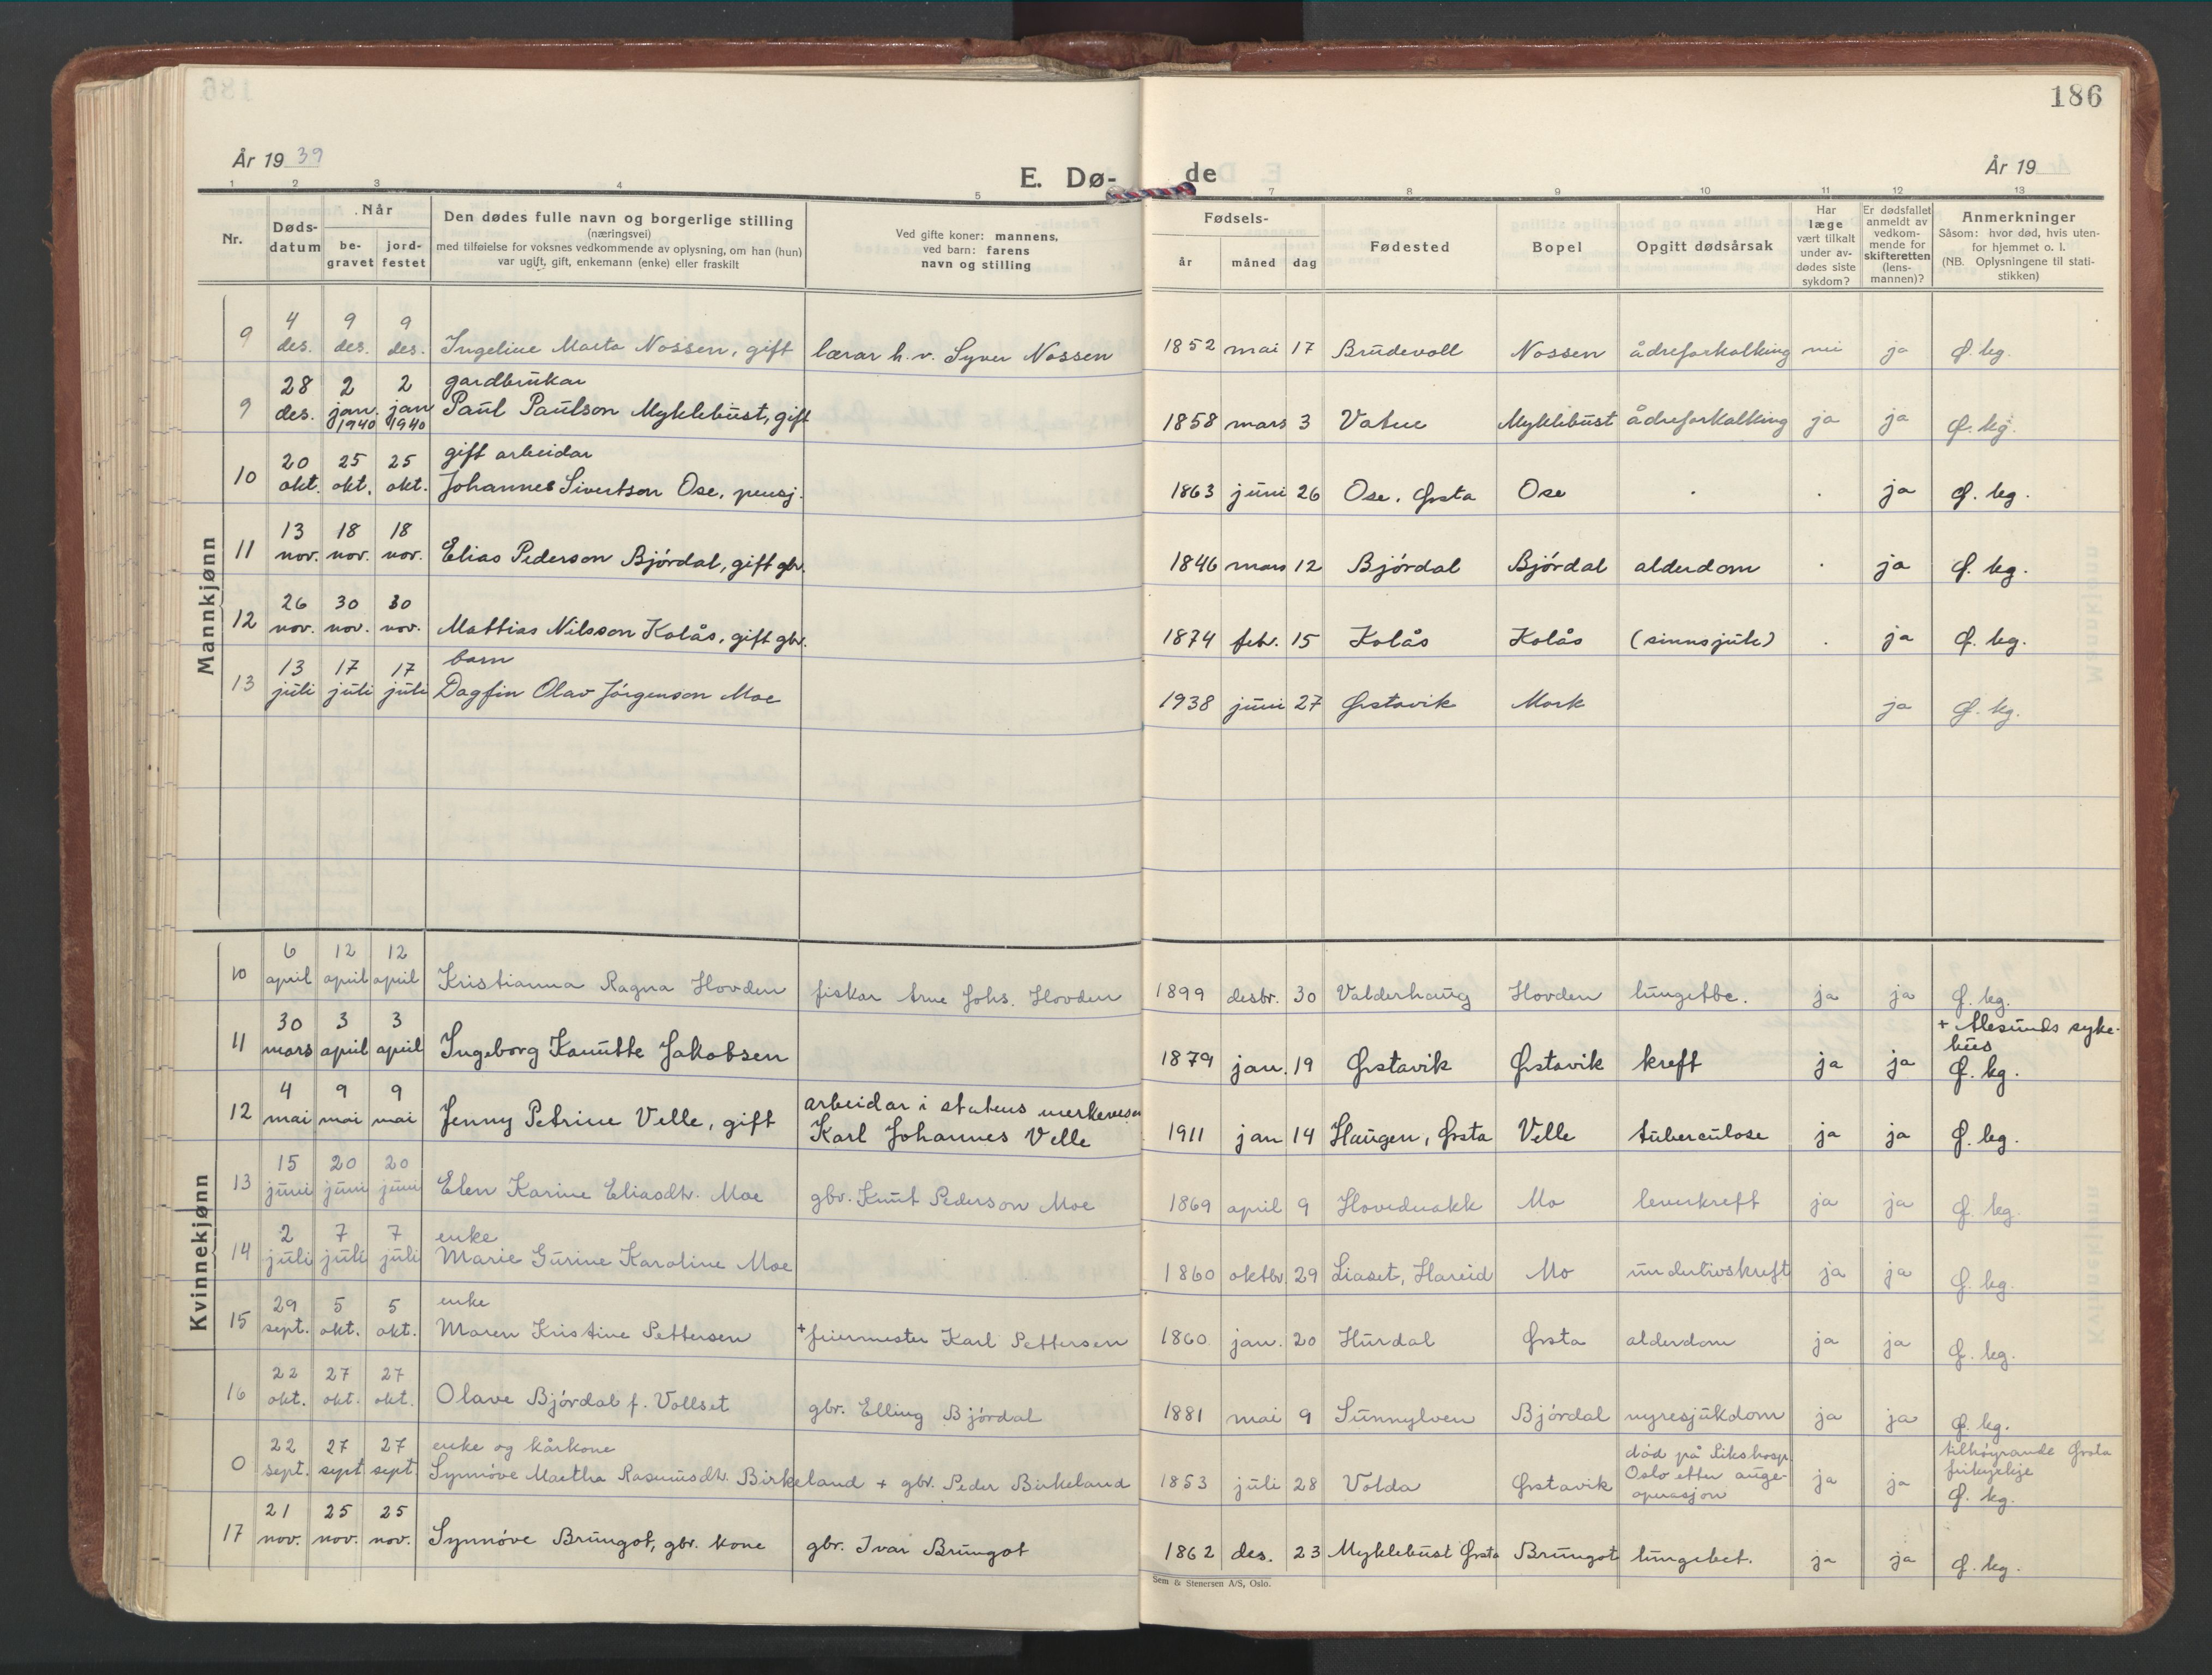 186
År 19 39
E. Dø-
de
År 19
1 2 3 4 5 7 8 9 10 11 12 13
Nr.
Døds-
datum
Når
be-
gravet
jord-
festet
Den dødes fulle navn og borgerlige stilling
(næringsvei)
med tilføielse for voksnes vedkommende av oplysning, om han (hun)
var ugift, gift, enkemann (enke) eller fraskilt
Ved gifte koner: mannens,
ved barn: farens
navn og stilling
Fødsels-
år måned dag
Fødested
Bopel
Opgitt dødsårsak
Har
læge
vært tilkalt
under av-
dødes siste
sykdom?
Er dødsfallet
anmeldt av
vedkom-
mende for
skifteretten
(lens-
mannen)?
Anmerkninger
Såsom: hvor død, hvis uten-
for hjemmet o. l.
(NB. Oplysningene til stati-
stikken)
Mannkjønn
4 9 9
9 des. des. des. Ingeline Marta Nossen, gift lærar h. v. Syver Nossen 1852 mai 17 Brudevoll Nossen ådreforkalking nei ja Ø. kg.
28 2 2 gardbrukar
9 des. jan. jan Paul Paulson Myklebust, gift 1858 mars 3 Vatne Myklebust ådreforkalking ja ja Ø. kg.
1940 1940
20 25 25 gift arbeidar
10 okt. okt. okt. Johannes Sivertson Ose, pensj. 1863 juni 26 Ose, Ørsta Ose . . ja Ø. kg.
13 18 18
11 nov. nov. nov. Elias Pederson Bjørdal, gift gbr. 1846 mars 12 Bjørdal Bjørdal alderdom . ja Ø. kg.
26 30 30
12 nov. nov. nov. Mattias Nilsson Kolås, gift gbr. 1874 febr. 15 Kolås Kolås (sinnsjuk) . ja Ø. kg.
13 17 17 barn
13 juli juli juli Dagfin Olav Jørgenson Moe 1938 juni 27 Ørstavik Mork ja Ø. kg.
Kvinnekjønn
6 12 12
10 april april april Kristianna Ragna Hovden fiskar Arne Johs. Hovden 1899 desbr. 30 Valderhaug Hovden lungetbc. ja ja Ø. kg.
30 3 3 + Ålesunds syke-
hus
11 mars april april Ingeborg Kanutte Jakobsen 1879 jan. 19 Ørstavik Ørstavik kreft ja ja Ø. kg.
4 9 9 arbeidar i statens merkevesen
12 mai mai mai Jenny Petrine Velle, gift Karl Johannes Velle 1911 jan 14 Haugen, Ørsta Velle tuberculose ja ja Ø. kg.
15 20 20
13 juni juni juni Elen Karine Eliasdtr. Moe gbr. Knut Pederson Moe 1869 april 9 Hovdenakk Mo leverkreft ja ja Ø. kg.
2 7 7 enke
14 juli juli juli Marie Gurine Karoline Moe 1860 oktbr. 29 Liaset, Hareid Mo underlivskreft ja ja Ø. kg.
29 5 5 enke
15 sept. okt. okt. Maren Kristine Pettersen + feiermester Karl Pettersen 1860 jan. 20 Hurdal Ørsta alderdom ja ja Ø. kg.
22 27 27
16 okt. okt. okt. Olave Bjørdal f. Vollset gbr. Elling Bjørdal 1881 mai 9 Sunnylven Bjørdal nyresjukdom ja ja Ø. kg.
22 27 27 enke og kårkone død på Rikshosp. tilhøyrande Ørsta
0 sept. sept sept. Synnøve Martha Rasmusdtr. Birkeland + gbr. Peder Birkeland 1853 juli 28 Volda Ørstavik Oslo etter auge- ja ja frikyrkje
operasjon Ø. kg.
21 25 25
17 nov. nov. nov. Synnøve Brungot, gbr. kone gbr. Ivar Brungot 1862 des. 23 Myklebust Ørsta Brungot lungebet. ja ja Ø. kg.
Sem & Stenersen A/S, Oslo.